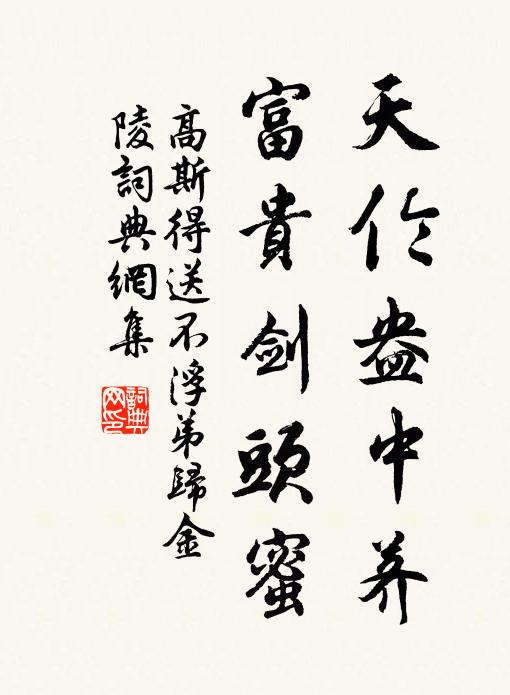 天伦盎中养
富貴剑頭蜜
高斯得送不浮弟歸金
陵詞典網集
詞典
网印